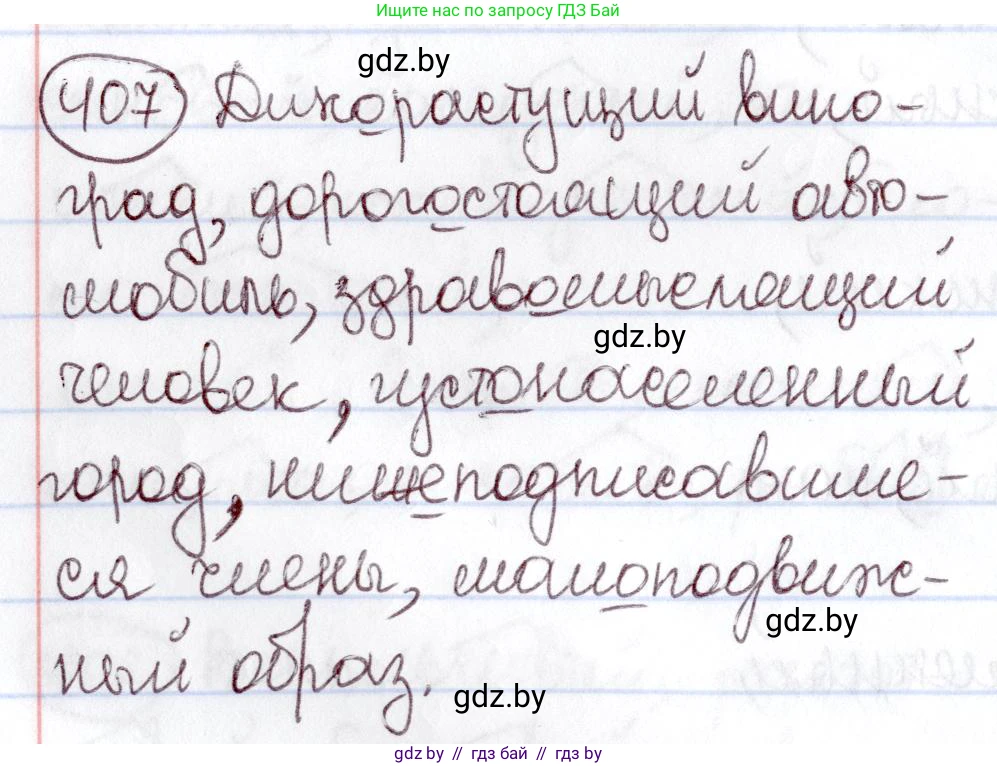 Ищите нас по запросу ГДЗ Бай
gdz.by
407 Дикорастущий вино-
град, дорогостоящий авто-
мобиль, здравомыслящий
gdz.by
человек, густонаселенный
город, нижеподписавшие-
ся члены, малоподвиж-
gdz.by
ный образ.
gdz.by
gdz.by // гдз бай // гдз by